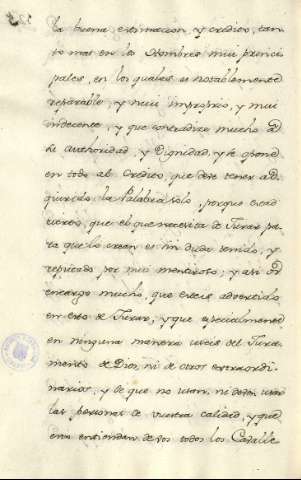 la buena estimacion, y credito, tan
to mas en los Hombres mui princi
pales, en los quales es notablemente
reparable, y mui improprio, y mui
indecente, y que contradice mucho a
la Authoridad, y Dignidad, y se opone
en todo al Credito, que debe tener ad
quirido la Palabra sólo, porque es ad
vierto, que el que necesita de Jurar pa
ra que lo crean es sin duda tenido, y
reputado por mui mentiroso; y asi os
encargo mucho, que esteis advertido
en esto de Jurar; y que especialmente
en ninguna manera useis del Jura
mento de Dios, ni de otros extraordi
narios, y de que no usan, ni deben usar
las personas de vuestra calidad, y que
entiendan de vos todos los Cavalle